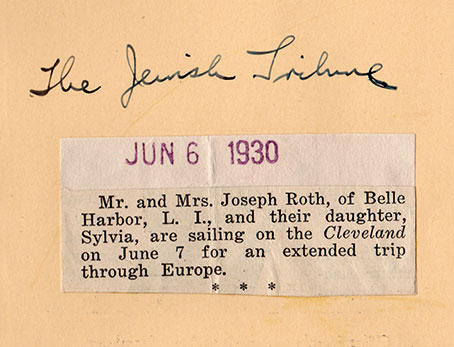 The Jewish Tribune
JUN 6 1930
Mr. and Mrs. Joseph Roth, of Belle
Harbor, L. I., and their daughter,
Sylvia, are sailing on the Cleveland
on June 7 for an extended trip
through Europe.
* * *